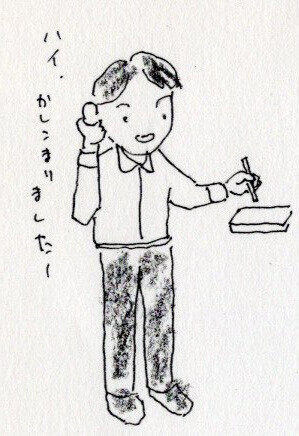 ハイ、かしこまりましたー